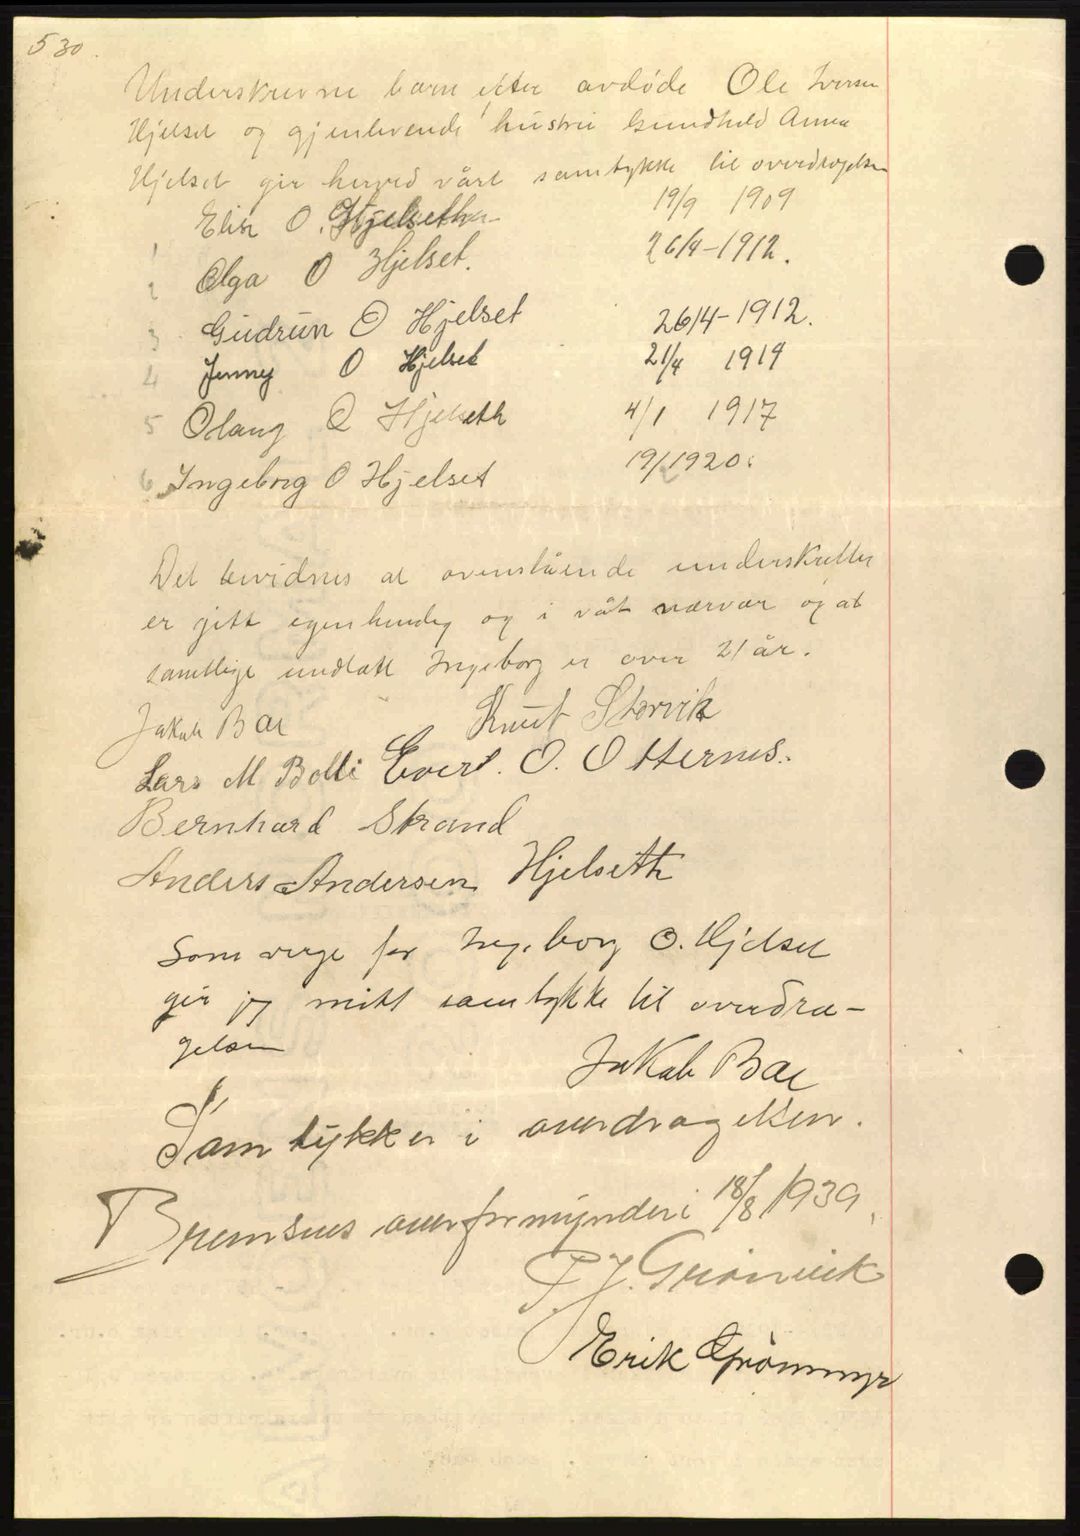 530.
Underskrevne barn efter avdøde Ole Iversen
Hjelset og gjenlevende hustru Gundhild Anna
Hjelset gir herved vårt samtykke til overdragelsen
Elise O. Hjelseth 19/9 1909
1
2 Olga O Hjelset. 26/4-1912.
3 Gudrun O Hjelset 26/4-1912.
4 Jenny O Hjelset 21/4 1914
5 Olaug O Hjelseth 4/1 1917
6 Ingeborg O Hjelset 19/2 1920.
Det bevidnes at ovenstående underskrifter
er gitt egenhendig og i vårt nærvær og at
samtlige undtatt Ingeborg er over 21 år.
Jakob Bae Knut Storvik
Lars M Bolli Evert. O. Otternes.
Bernhard Strand
Anders Andersen Hjelseth
Som verge for Ingeborg O. Hjelset
gir jeg mitt samtykke til overdra-
gelsen
Jakob Bae
Samtykker i overdragelsen.
Bremsnes overformynderi 18/8 1939.
P. J. Grønvik
Erik Grønmyr